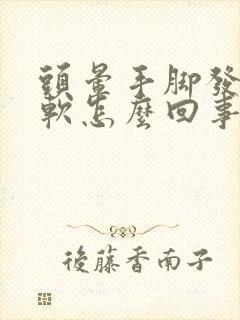 頭暈手脚發
軟怎麼回事
後藤香南子